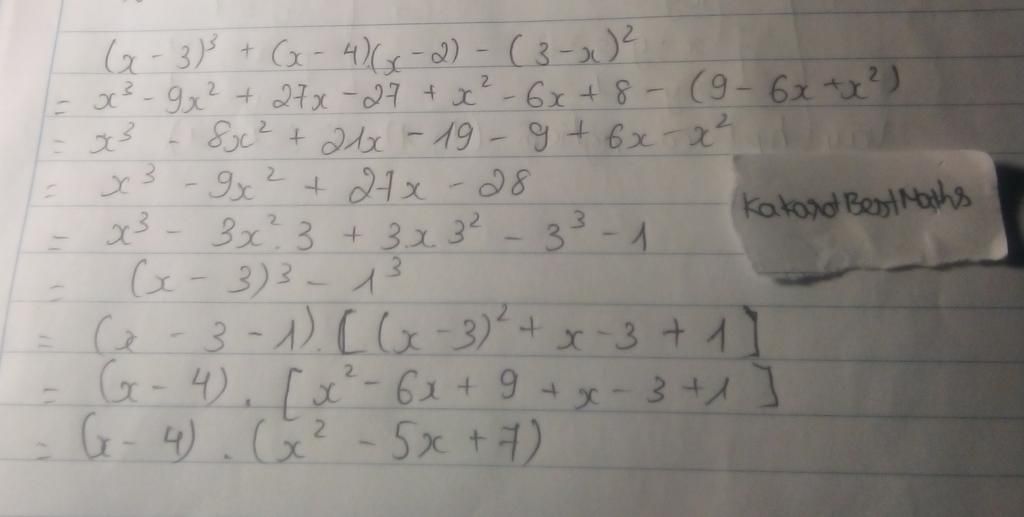 (x - 3)³ + (x - 4)(x - 2) - (3 - x)²
= x³ - 9x² + 27x - 27 + x² - 6x + 8 - (9 - 6x + x²)
= x³ - 8x² + 21x - 19 - 9 + 6x - x²
= x³ - 9x² + 27x - 28
= x³ - 3x².3 + 3.x.3² - 3³ - 1
= (x - 3)³ - 1³
= (x - 3 - 1).[(x - 3)² + x - 3 + 1]
= (x - 4).[x² - 6x + 9 + x - 3 + 1]
= (x - 4).(x² - 5x + 7)
KakarotBestMaths